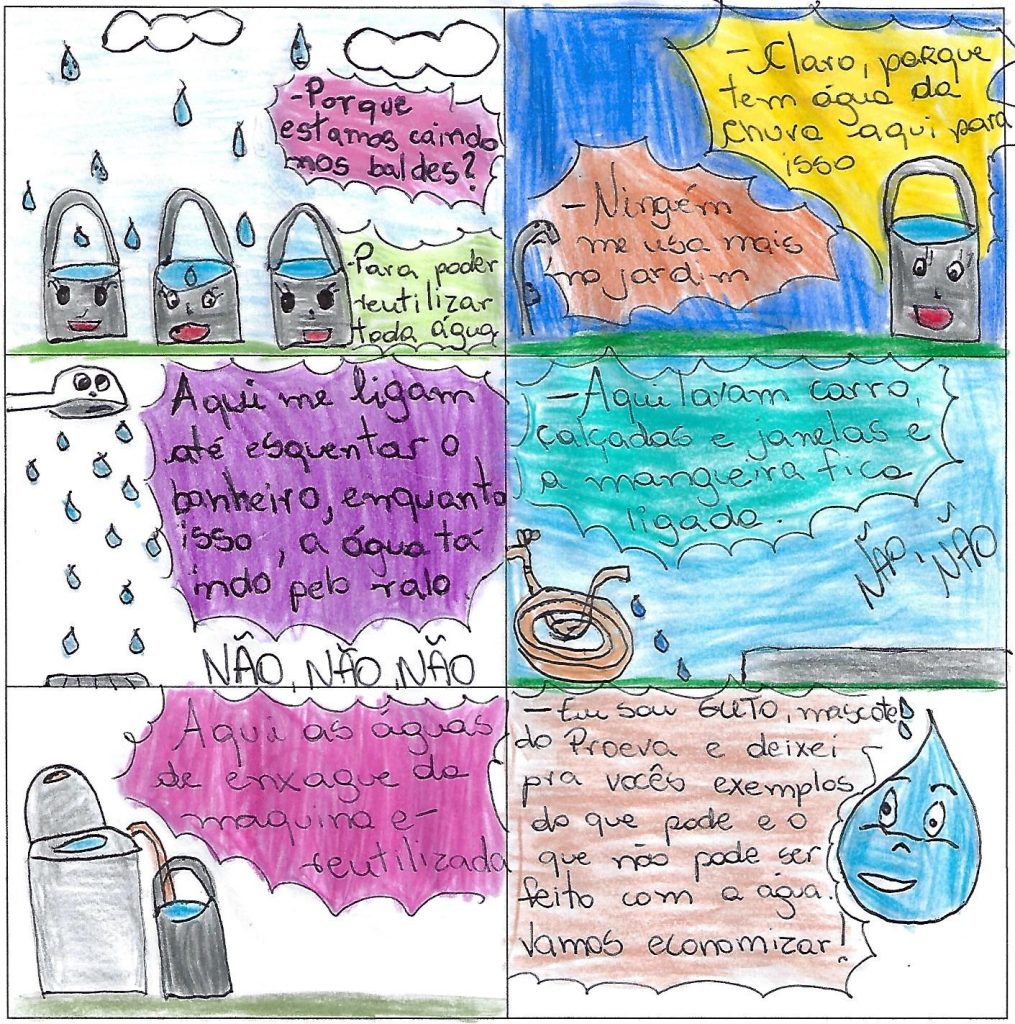 -Porque
estamos caindo
nos baldes?
-Para poder
reutilizar
toda água
-Ningém
me usa mais
no jardim
-Claro, porque
tem água da
chuva aqui para
isso
Aqui me ligam
até esquentar o
banheiro, enquanto
isso, a água tá
indo pelo ralo.
NÃO, NÃO, NÃO
-Aqui lavam carro,
calçadas e janelas e
a mangueira fica
ligada.
NÃO, NÃO
Aqui as águas
de enxague da
maquina e-
reutilizada
-Eu sou GUTO, mascote
do Proeva e deixei
pra vocês exemplos
do que pode e o
que não pode ser
feito com a água.
Vamos economizar!